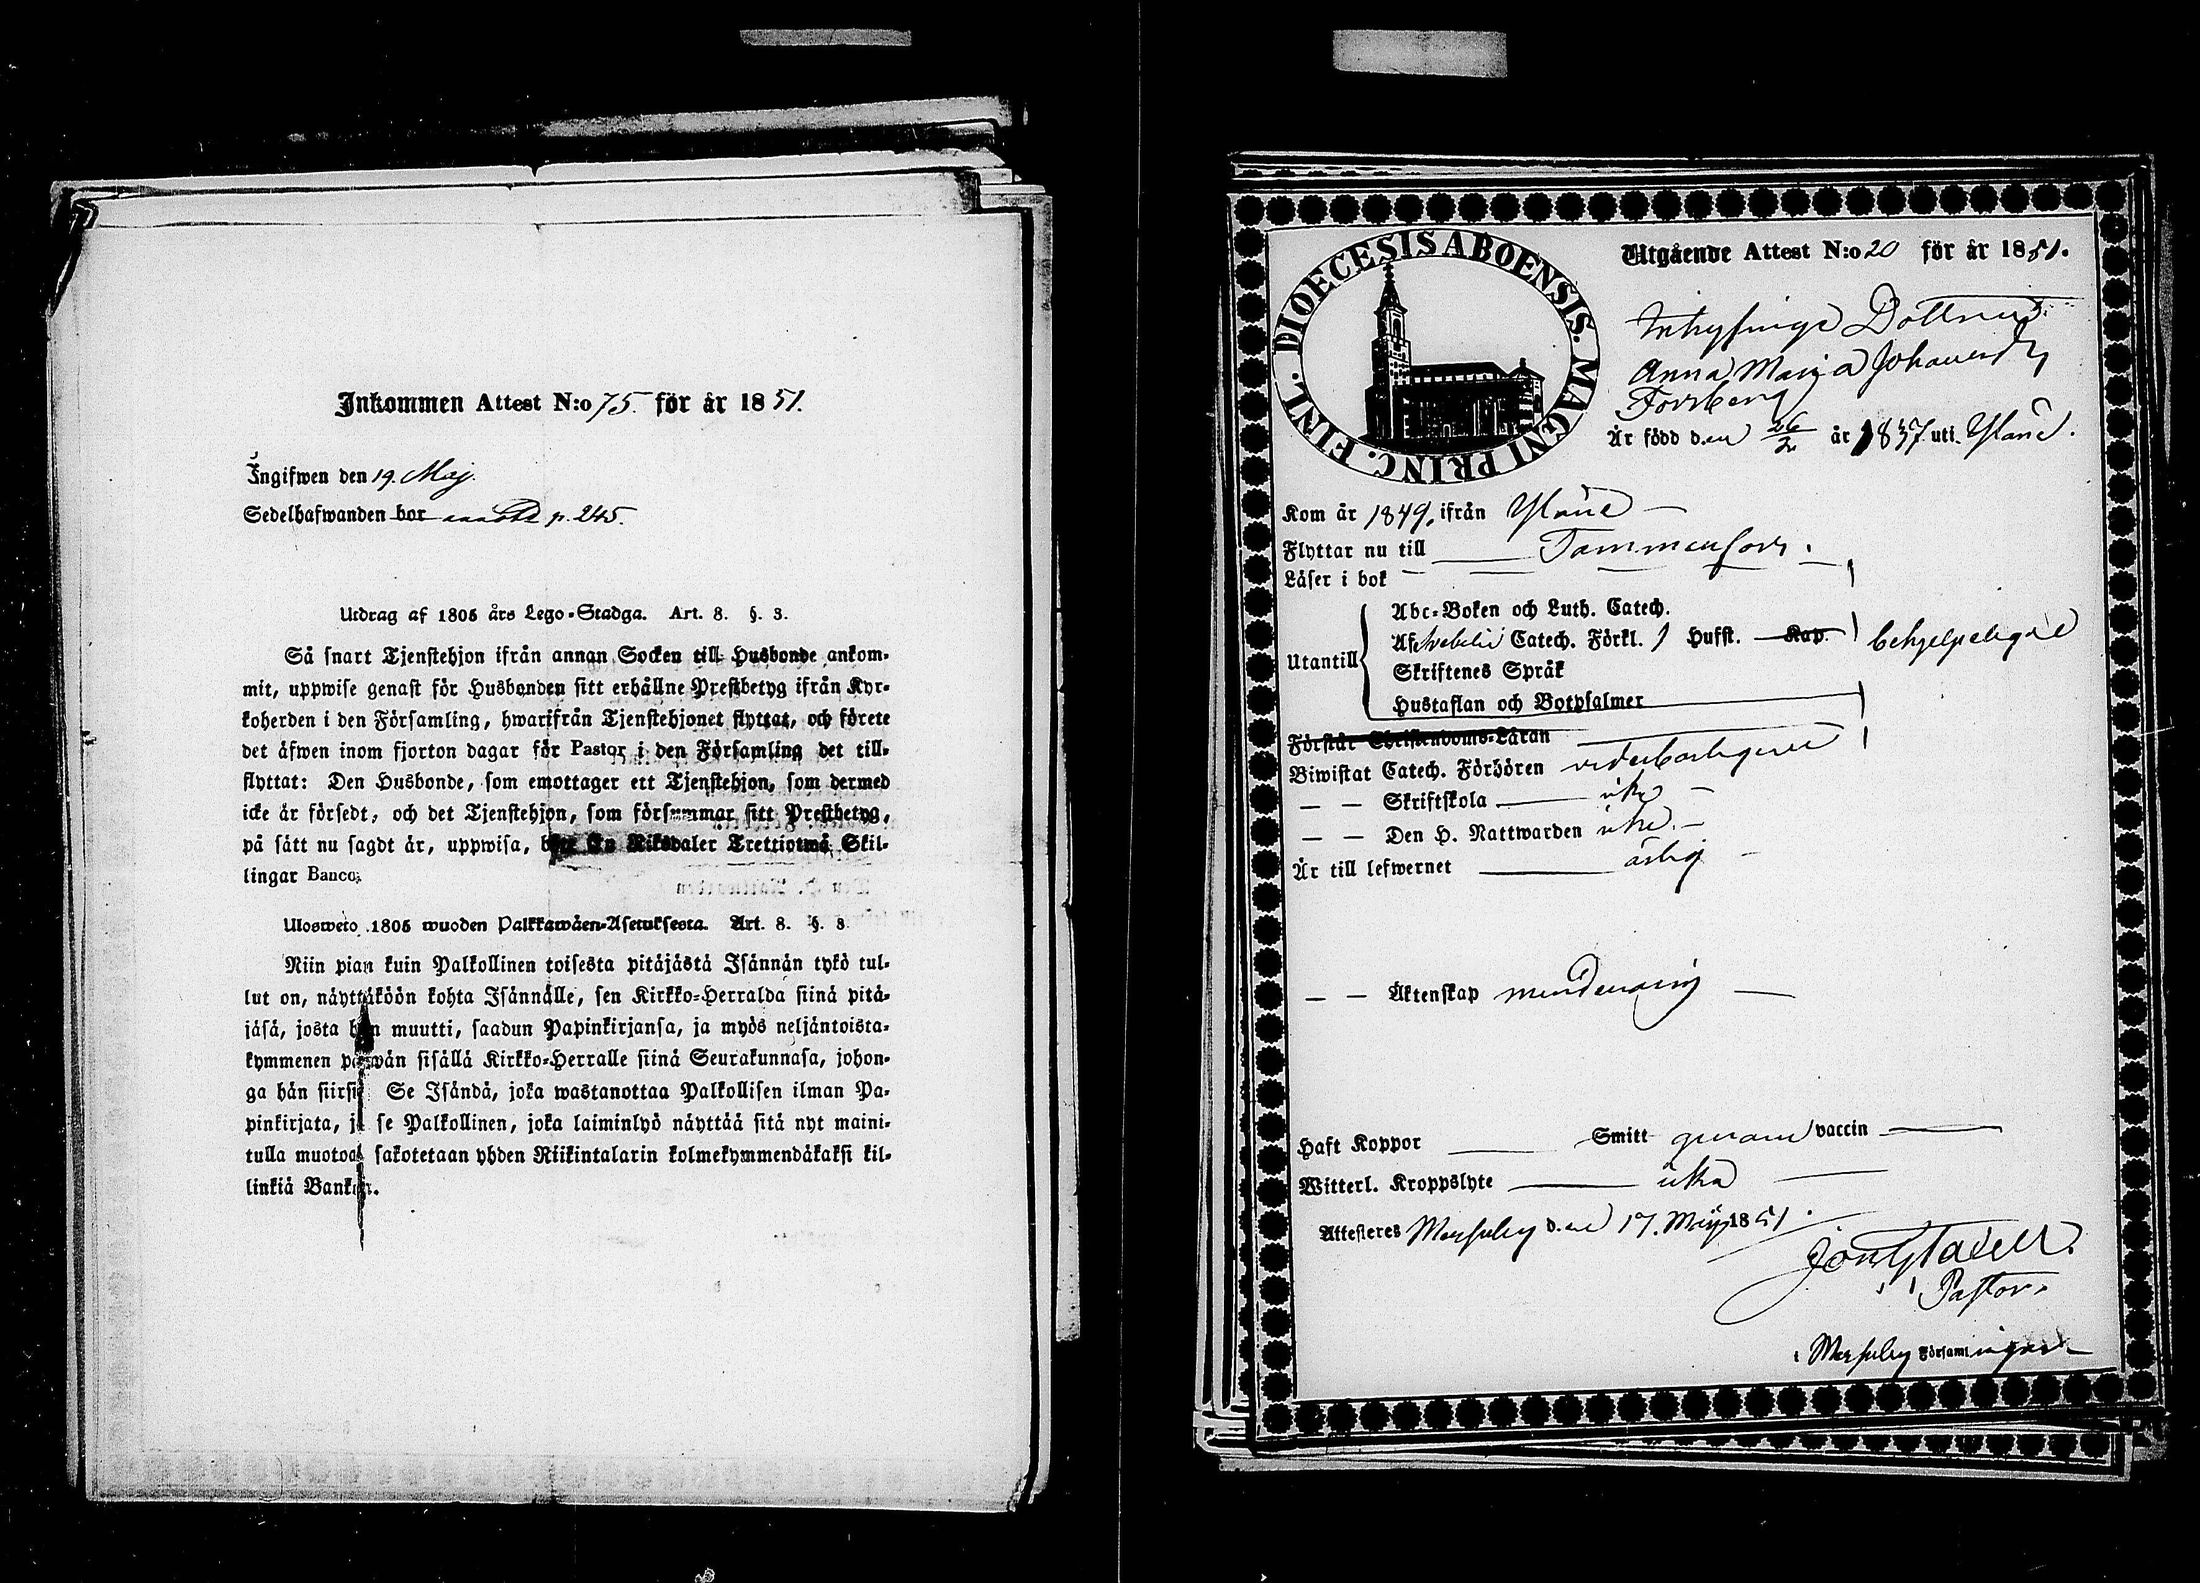 Inkommen Attest N:o 75. för år 1851.
Ingifwen den 19. Maj.
Sedelhafwanden bor p. 245.
Utdrag af 1805 års Lego-Stadga. Art. 8. §. 3.
Så snart Tjenstehjon ifrån annan Socken till Husbonde ankom-
mit, uppwise genast för Husbonden sitt erhållne Prestbetyg ifrån Kyr-
koherden i den Församling, hwarifrån Tjenstehjonet flyttat, och förete
det äfwen inom fjorton dagar för Pastor i den Församling det till-
flyttat: Den Husbonde, som emottager ett Tjenstehjon, som dermed
icke är försedt, och det Tjenstehjon, som försummar sitt Prestbetyg,
på sätt nu sagdt är, uppwisa, böte En Riksdaler Trettiotwå Skil-
lingar Banco.
Ulosweto 1805 wuoden Palkkawäen-Asetuksesta. Art. 8. §. 3.
Niin pian kuin Palkollinen toisesta pitäjästä Isännän tykö tul-
lut on, näyttäköön kohta Isännälle, sen Kirkko-Herralda siinä pitä-
jäsä, josta hän muutti, saadun Papinkirjansa, ja myös neljäntoista-
kymmenen päiwän sisällä Kirkko-Herralle siinä Seurakunnasa, johon-
ga hän siirsi: Se Isändä, joka wastanottaa Palkollisen ilman Pa-
pinkirjata, ja se Palkollinen, joka laiminlyö näyttää sitä nyt maini-
tulla muotoa, sakotetaan yhden Riikintalarin kolmekymmendäkaksi kil-
linkiä Bankos.
DIOECESIS ABOENSIS. MAGNI PRINC. FINL.
Utgående Attest N:o 20 för år 1851.
Inhysinge Dottren
Anna Maria Johansd:r
Forsberg
Är född den 26/2 år 1837 uti Yläne.
Kom år 1849, ifrån Yläne
Flyttar nu till Tammerfors.
Läser i bok
Utantill
Abc-Boken och Luth. Catech.
Af Svebelii Catech. Förkl. Hufst. Kap. behjelpeligare
Skriftenes Språk
Hustaflan och Botpsalmer
Förstår Christendoms-Läran
Biwistat Catech. Förhören vederbörligen
— — Skriftskola icke
— — Den H. Nattwarden icke
Är till lefwernet ärlig
— — Äktenskap minderårig
Haft Koppor Smitt genom vaccin
Witterl. Kroppslyte icke
Attesteres den 17. Maj 1851.
Pastor.
i Församlingen